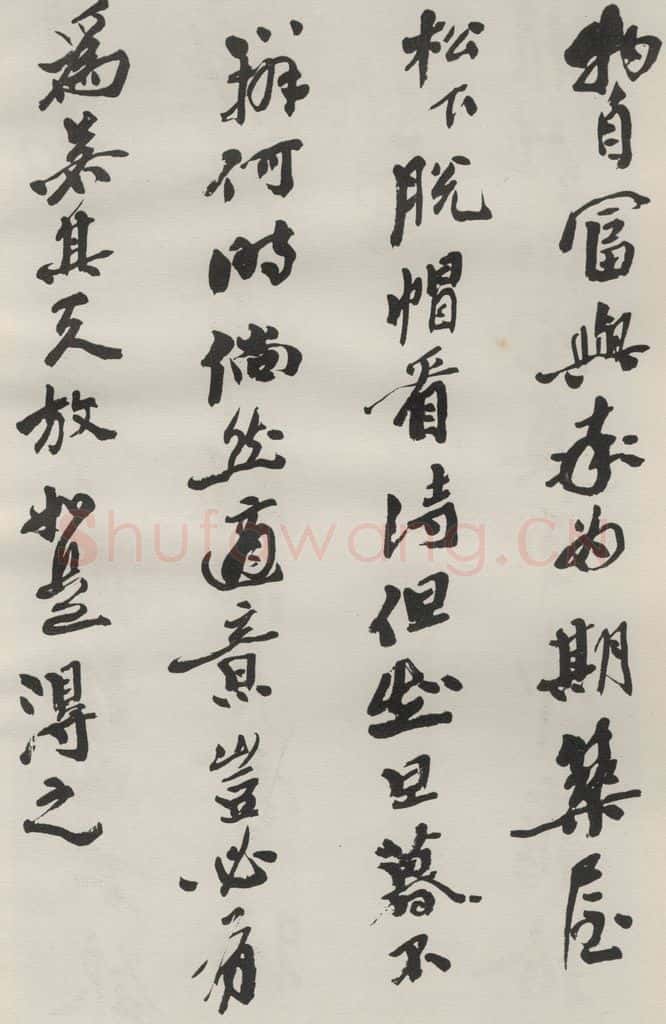 物自富與率為期築屋
松下脫帽看詩但知旦暮不
辨何時倘然適意豈必有
為若其天放如是得之
Shufawang.CN